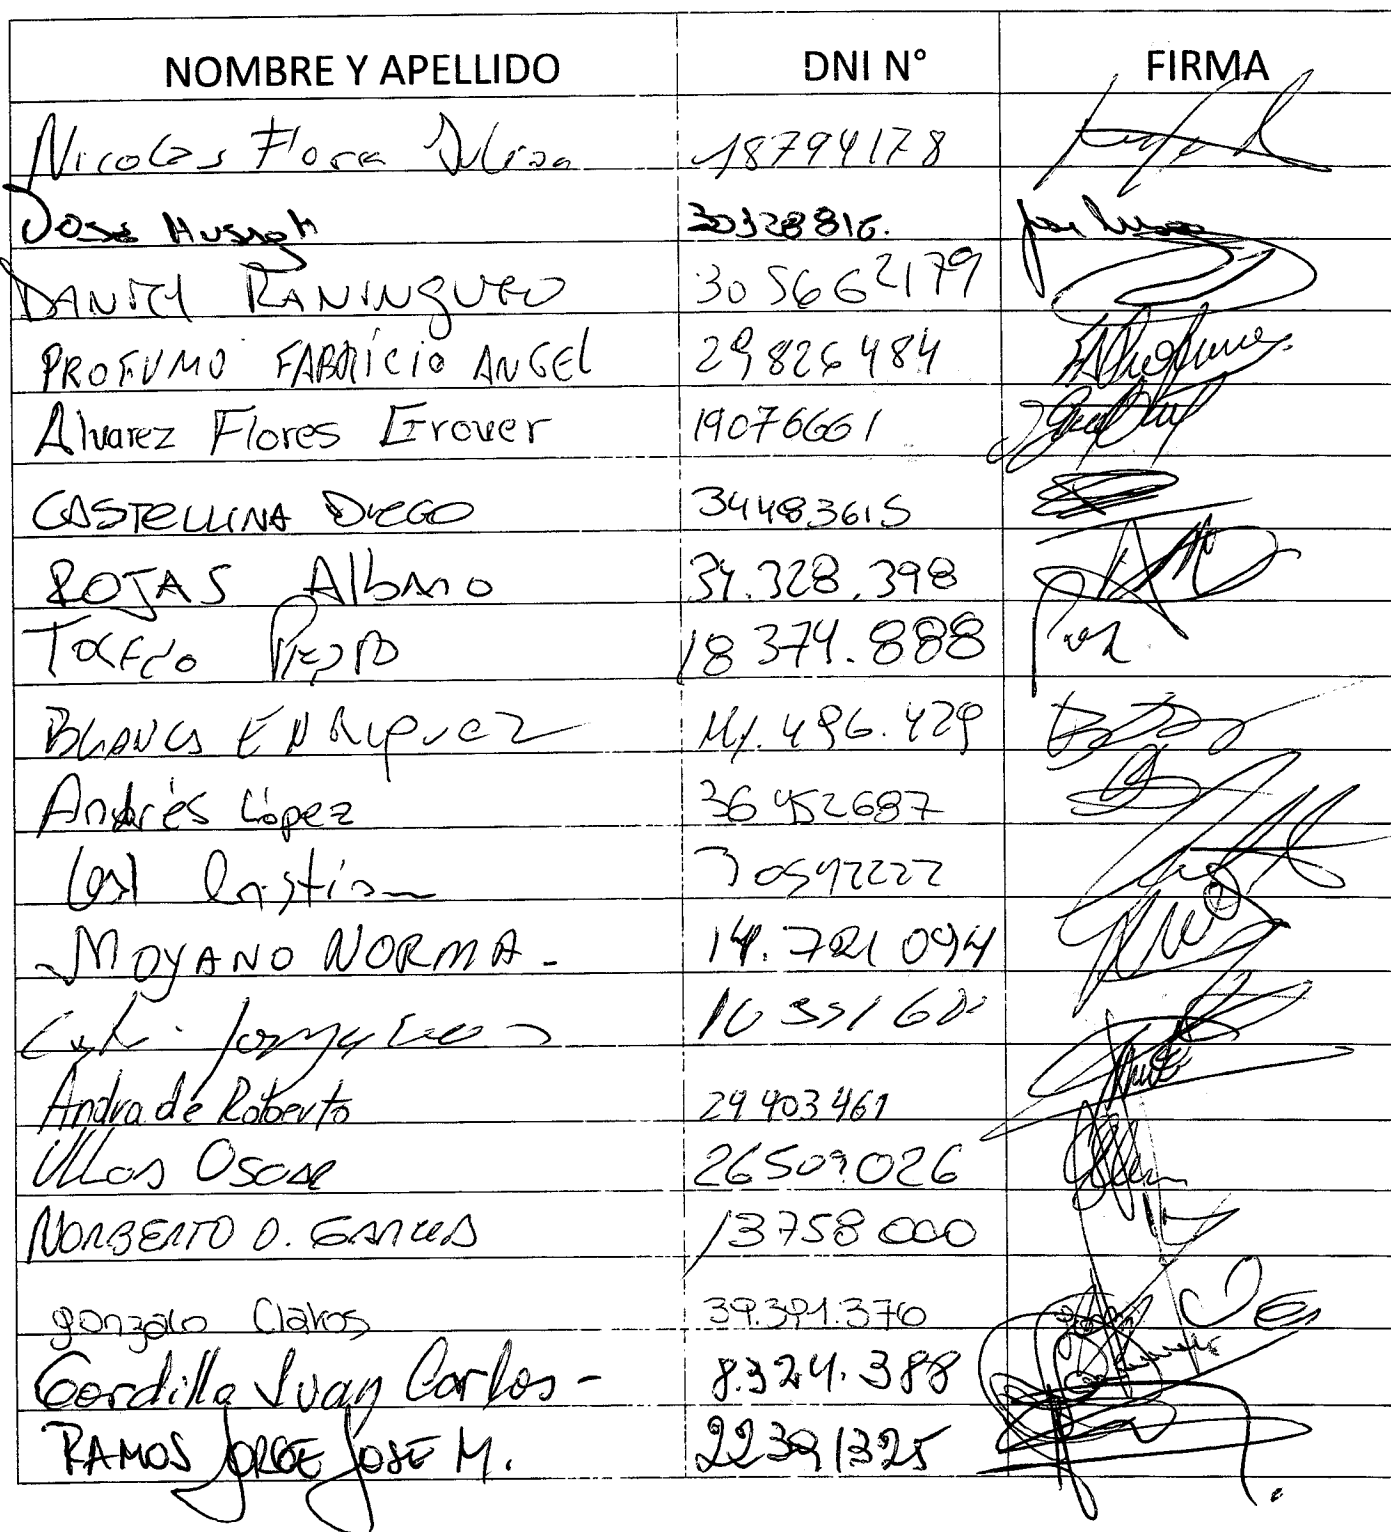 NOMBRE Y APELLIDO DNI N° FIRMA
Nicolas Flora Julisa 18794178
Jose 30328816.
DANIEL RANINQUEO 305662179
PROFUMO FABRICIO ANGEL 29826484
Alvarez Flores Grover 19076661
CASTELLINA DIEGO 34483615
ROJAS Albano 34.328.398
18 374.888
BLANCA ENRIQUEZ 14.496.429
Andrés López 36452687
30597222
MOYANO NORMA - 14.721 094
Andrade Roberto 24403461
Illas Oscar 26509026
NORBERTO O. GARCIA 13758000
gonzalo Claros 39.391.370
Gordillo Juan Carlos - 8.324.388
RAMOS JORGE JOSE M. 22391325